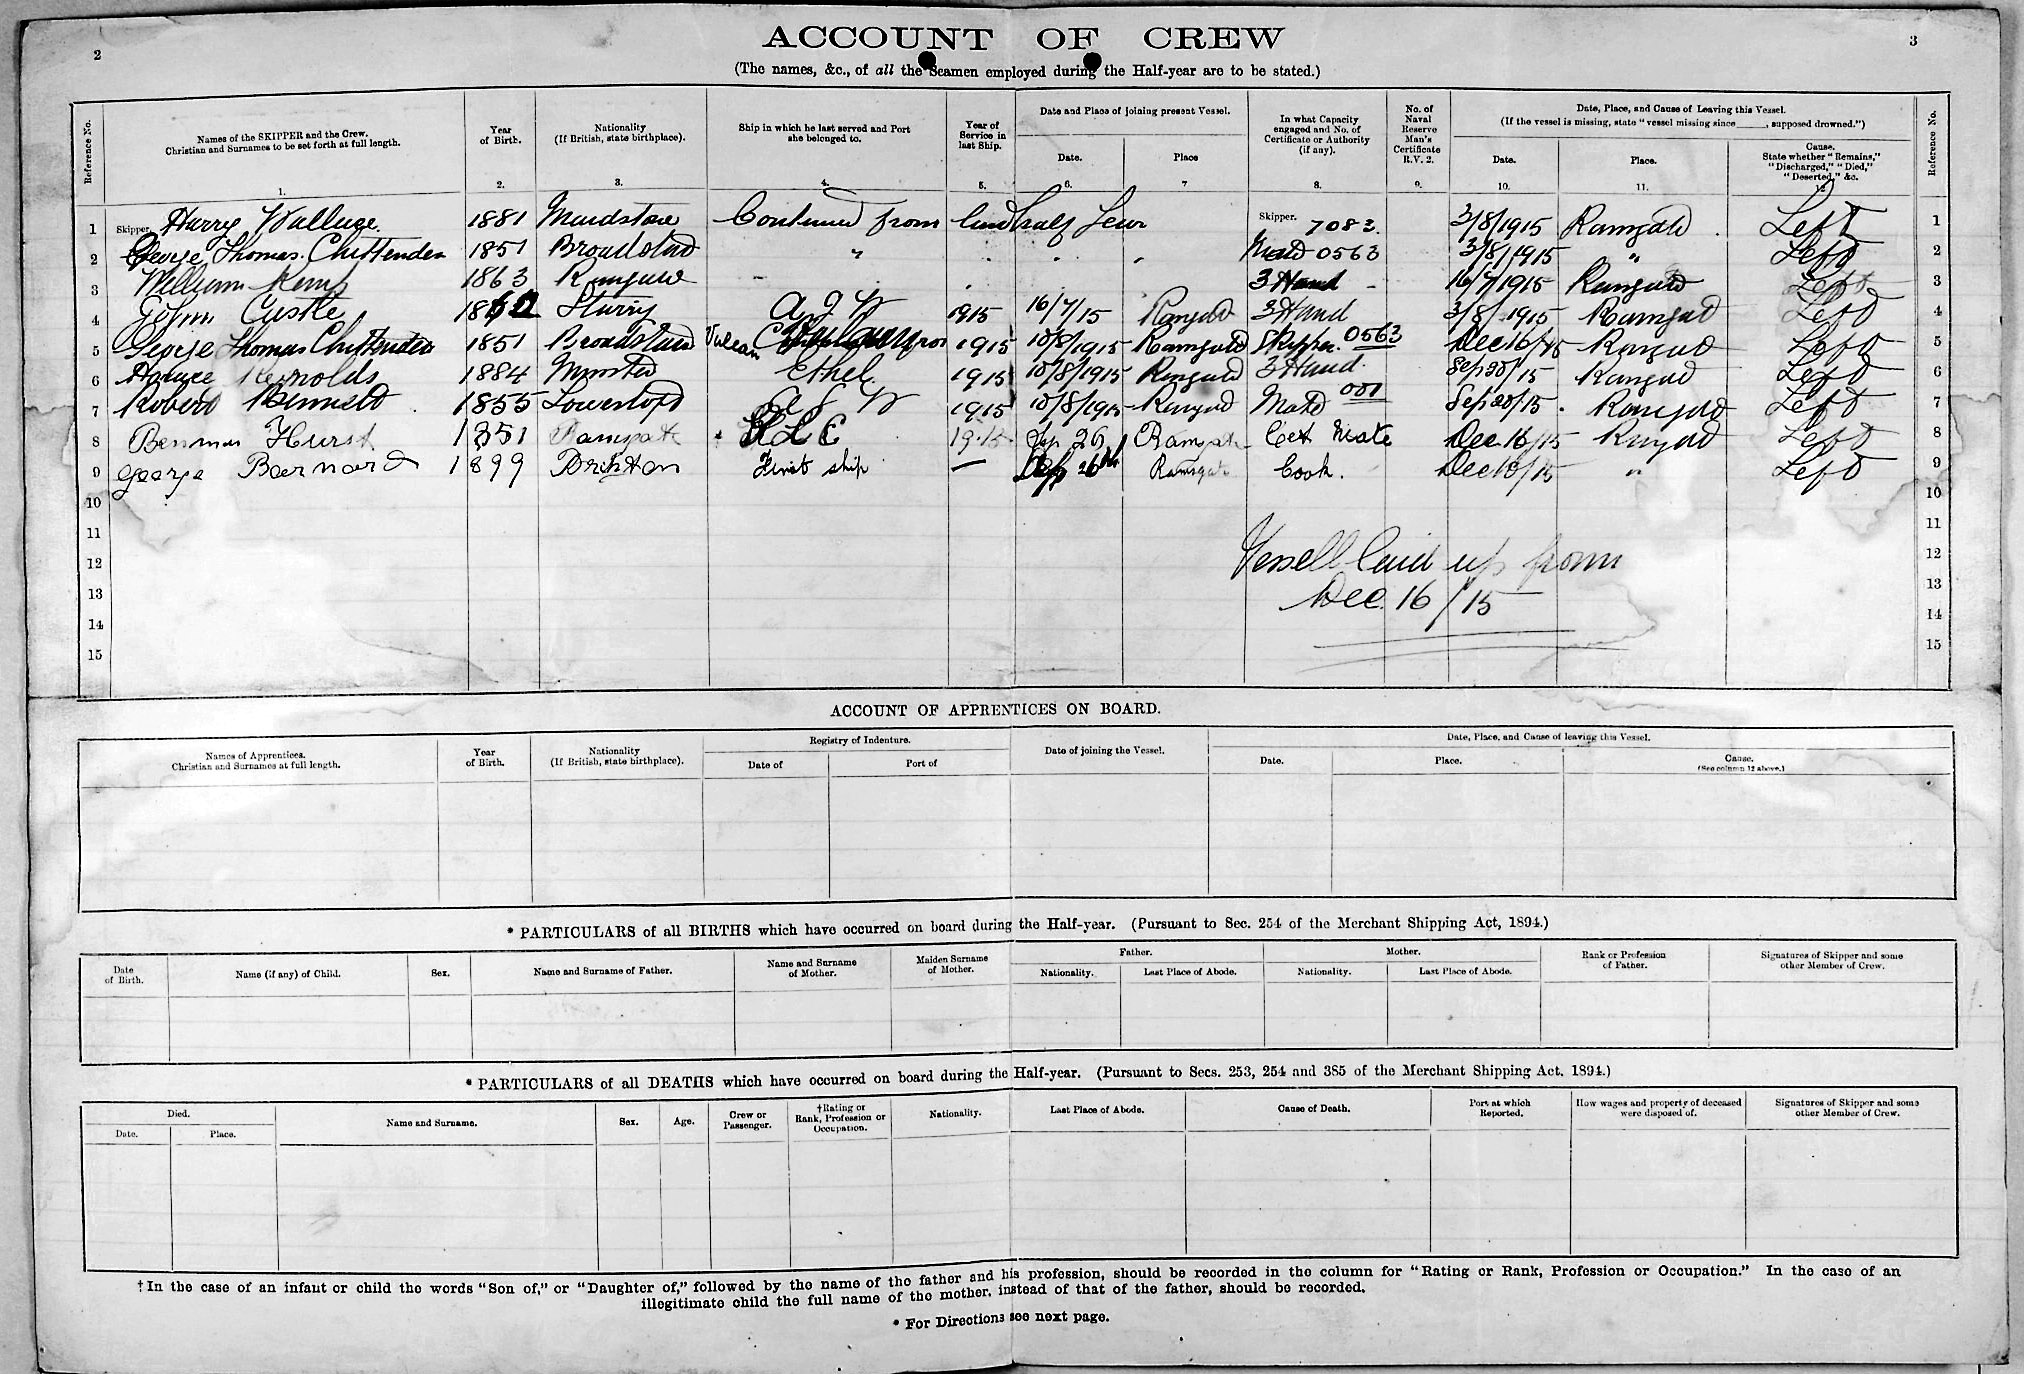 2
ACCOUNT OF CREW
3
(The names, &c., of all the Seamen employed during the Half-year are to be stated.)
Reference No.
Names of the SKIPPER and the Crew. Christian and Surnames to be set forth at full length.
Year of Birth.
Nationality (If British, state birthplace).
Ship in which he last served and Port she belonged to.
Year of Service in last Ship.
Date and Place of joining present Vessel.
Date.
Place
In what Capacity engaged and No. of Certificate or Authority (if any).
No. of Naval Reserve Man's Certificate R.V. 2.
Date, Place, and Cause of Leaving this Vessel.
(If the vessel is missing, state "vessel missing since____, supposed drowned.")
Date.
Place.
Cause. State whether "Remains," "Discharged," "Died," "Deserted," &c.
Reference No.
1. 2. 3. 4. 5. 6. 7 8. 9. 10. 11. 12
1 Skipper. Harry 1881 Maidstone Continued from half Skipper. 7083. 3/8/1915 Ramsgate Left 1
2 George Thomas Chittenden 1851 Broadstairs " Mate 0563 3/8/1915 " Left 2
3 William Kemp 1863 Ramsgate 3 Hand 16/7/1915 Ramsgate Left 3
4 John Castle Sturry A J W 1915 16/7/15 Ramsgate 3 Hand 3/8/1915 Ramsgate Left 4
5 George Thomas Chittenden 1851 Broadstairs Vulcan 1915 10/8/1915 Ramsgate Skipper. 0563 Dec 16/15 Ramsgate Left 5
6 Horace Reynolds 1884 Minster Ethel 1915 10/8/1915 Ramsgate 3 Hand. Sep 20/15 Ramsgate Left 6
7 Robert Bennett 1855 Lowestoft A J W 1915 10/8/1915 Ramsgate Mate 001 Sep 20/15 Ramsgate Left 7
8 Hurst 1851 Ramsgate 1915 Sep 26 Ramsgate Mate Dec 16/15 Ramsgate Left 8
9 George Barnard 1899 Brixton First ship — Sep 26th Ramsgate Cook. Dec 16/15 " Left 9
10 10
11 11
12 Vessell laid up from 12
13 Dec 16/15 13
14 14
15 15
ACCOUNT OF APPRENTICES ON BOARD.
Names of Apprentices. Christian and Surnames at full length.
Year of Birth.
Nationality (If British, state birthplace).
Registry of Indenture.
Date of
Port of
Date of joining the Vessel.
Date, Place, and Cause of leaving this Vessel.
Date.
Place.
Cause. (See column 12 above.)
* PARTICULARS of all BIRTHS which have occurred on board during the Half-year. (Pursuant to Sec. 254 of the Merchant Shipping Act, 1894.)
Date of Birth.
Name (if any) of Child.
Sex.
Name and Surname of Father.
Name and Surname of Mother.
Maiden Surname of Mother.
Father.
Nationality.
Last Place of Abode.
Mother.
Nationality.
Last Place of Abode.
Rank or Profession of Father.
Signatures of Skipper and some other Member of Crew.
* PARTICULARS of all DEATHS which have occurred on board during the Half-year. (Pursuant to Secs. 253, 254 and 385 of the Merchant Shipping Act. 1894.)
Died.
Date.
Place.
Name and Surname.
Sex.
Age.
Crew or Passenger.
†Rating or Rank, Profession or Occupation.
Nationality.
Last Place of Abode.
Cause of Death.
Port at which Reported.
How wages and property of deceased were disposed of.
Signatures of Skipper and some other Member of Crew.
†In the case of an infant or child the words "Son of," or "Daughter of," followed by the name of the father and his profession, should be recorded in the column for "Rating or Rank, Profession or Occupation." In the case of an
illegitimate child the full name of the mother, instead of that of the father, should be recorded.
* For Directions see next page.